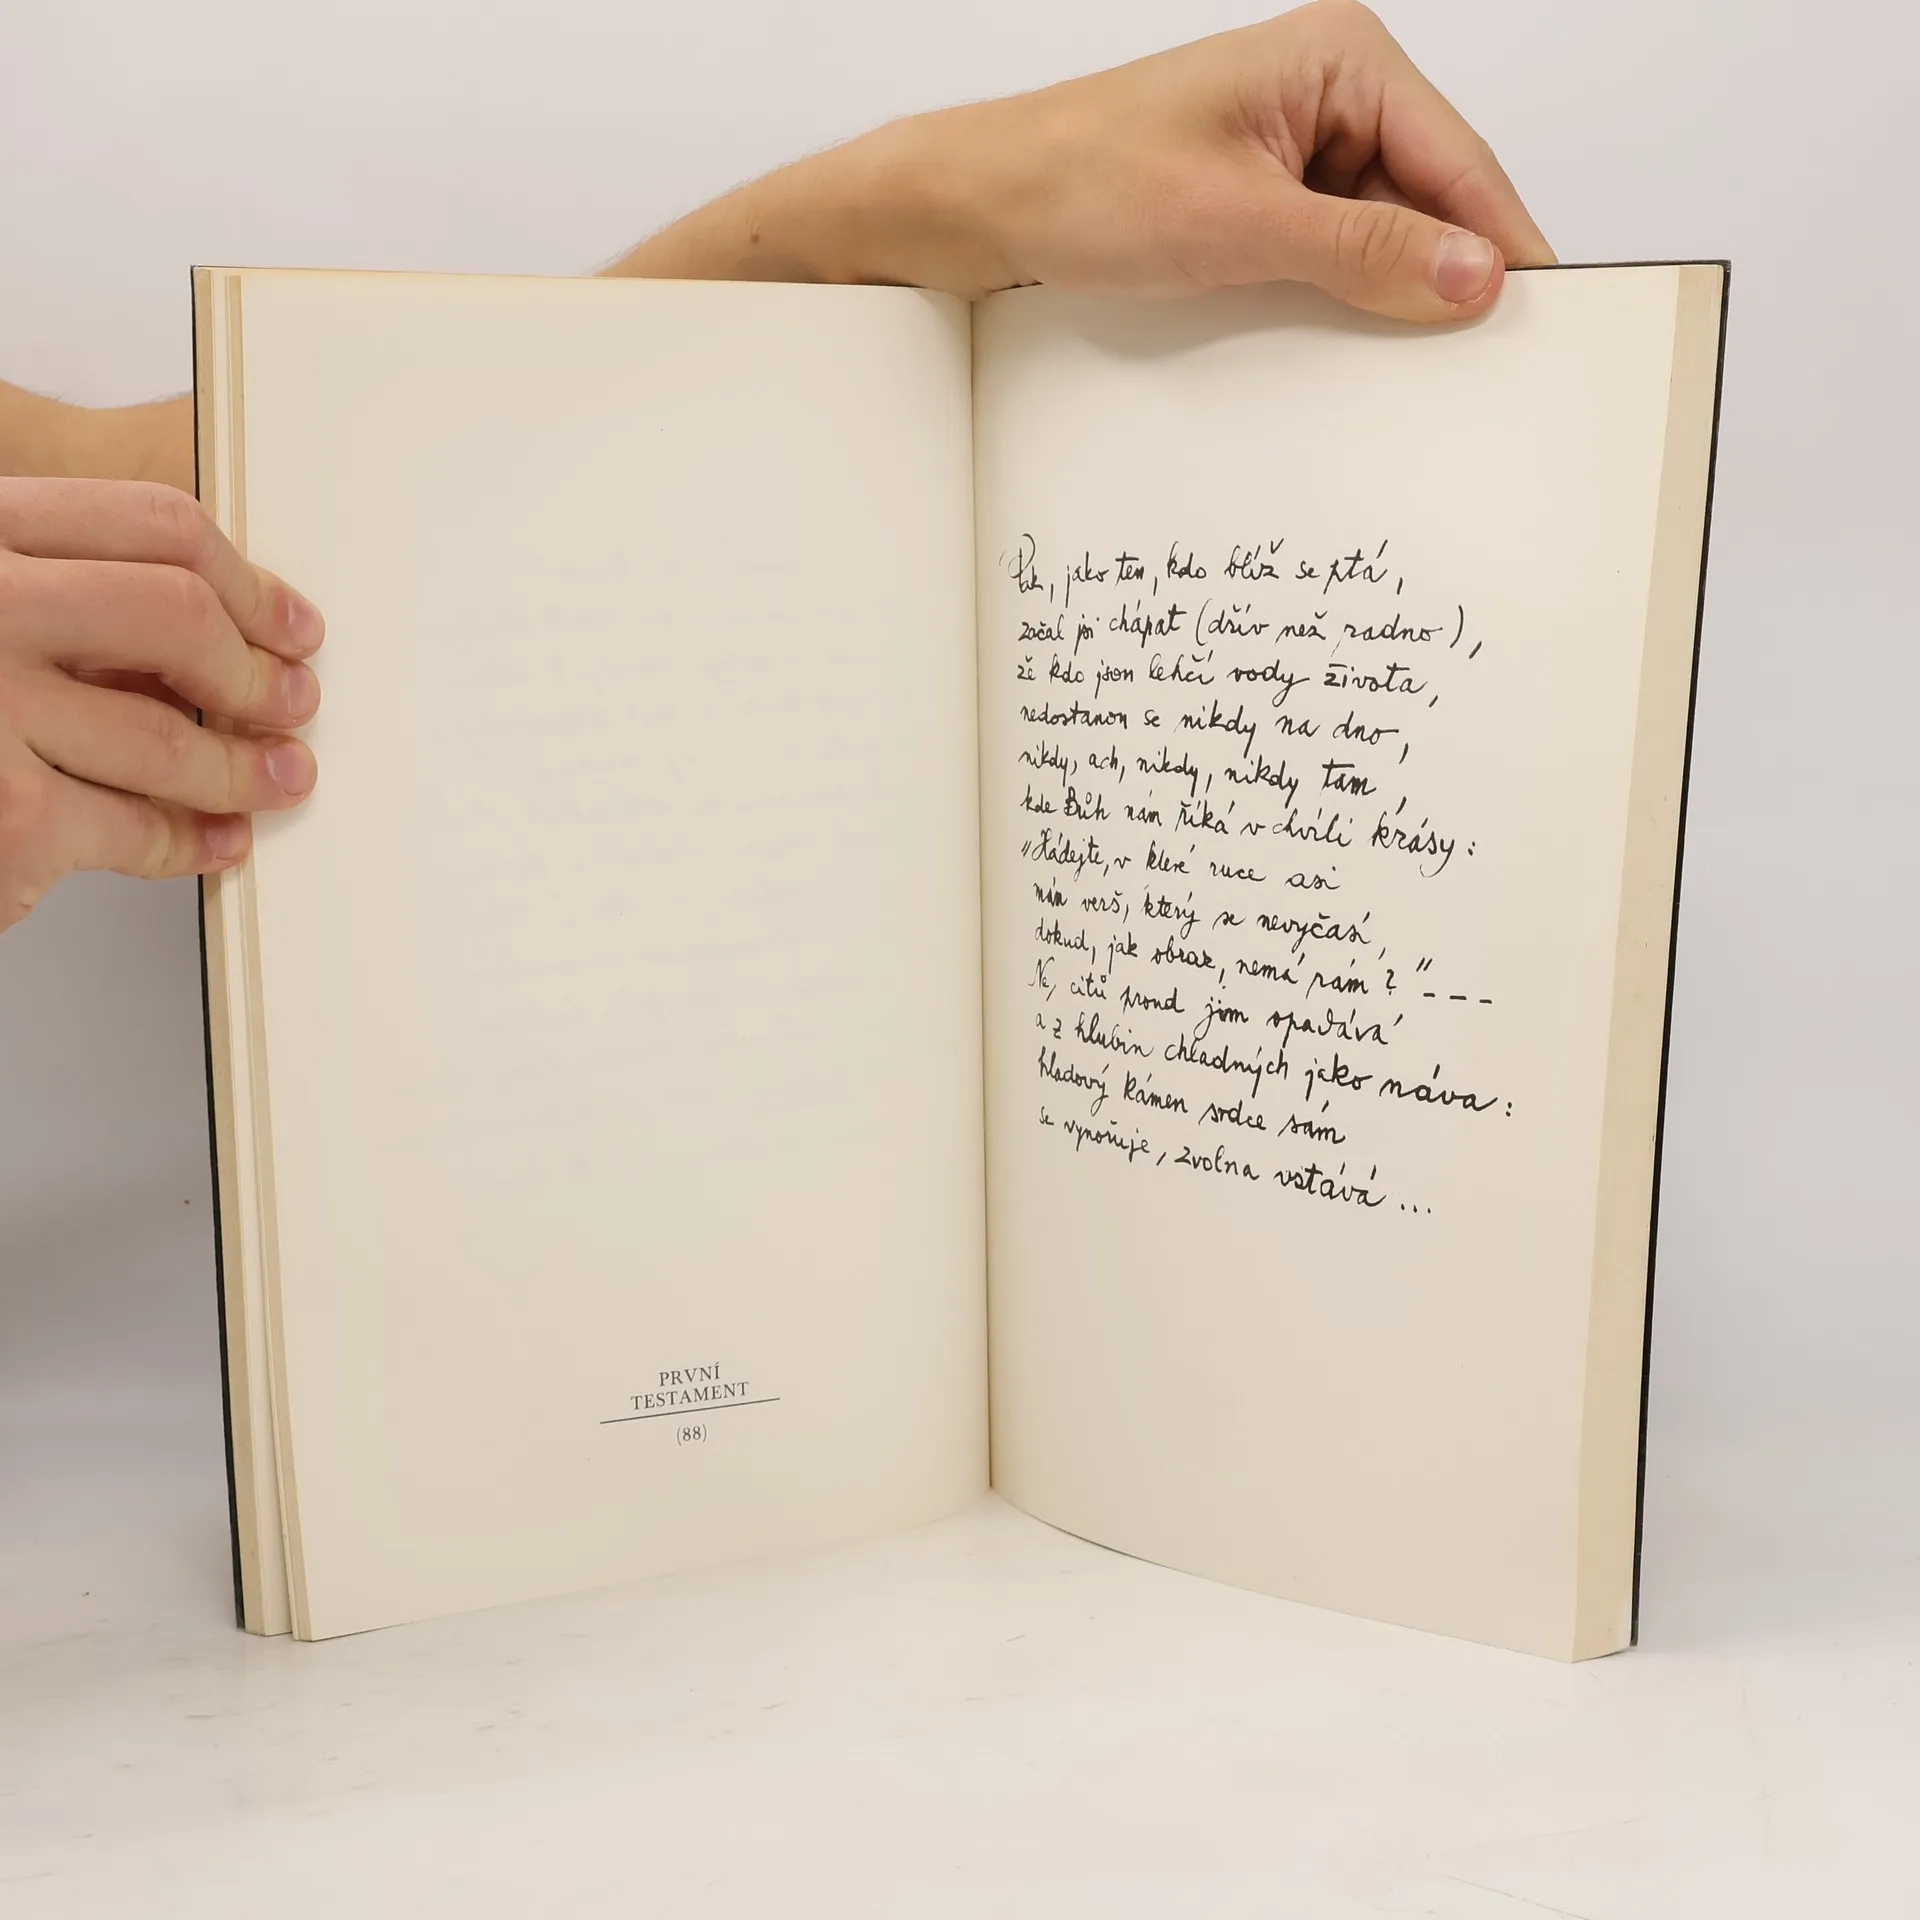 PRVNÍ
TESTAMENT
(88)
Pak, jako ten, kdo blíž se ptá,
začal jsi chápat (dřív než radno),
že kdo jsou lehčí vody života,
nedostanou se nikdy na dno,
nikdy, ach, nikdy, nikdy tam,
kde Bůh nám říká v chvíli krásy:
"Hádejte, v které ruce asi
mám verš, který se nevyčasí,
dokud, jak obraz, nemá rám?" – – –
Ne, citů proud jim opadává
a z hlubin chladných jako náva:
hladový kámen srdce sám
se vynořuje, zvolna vstává ...